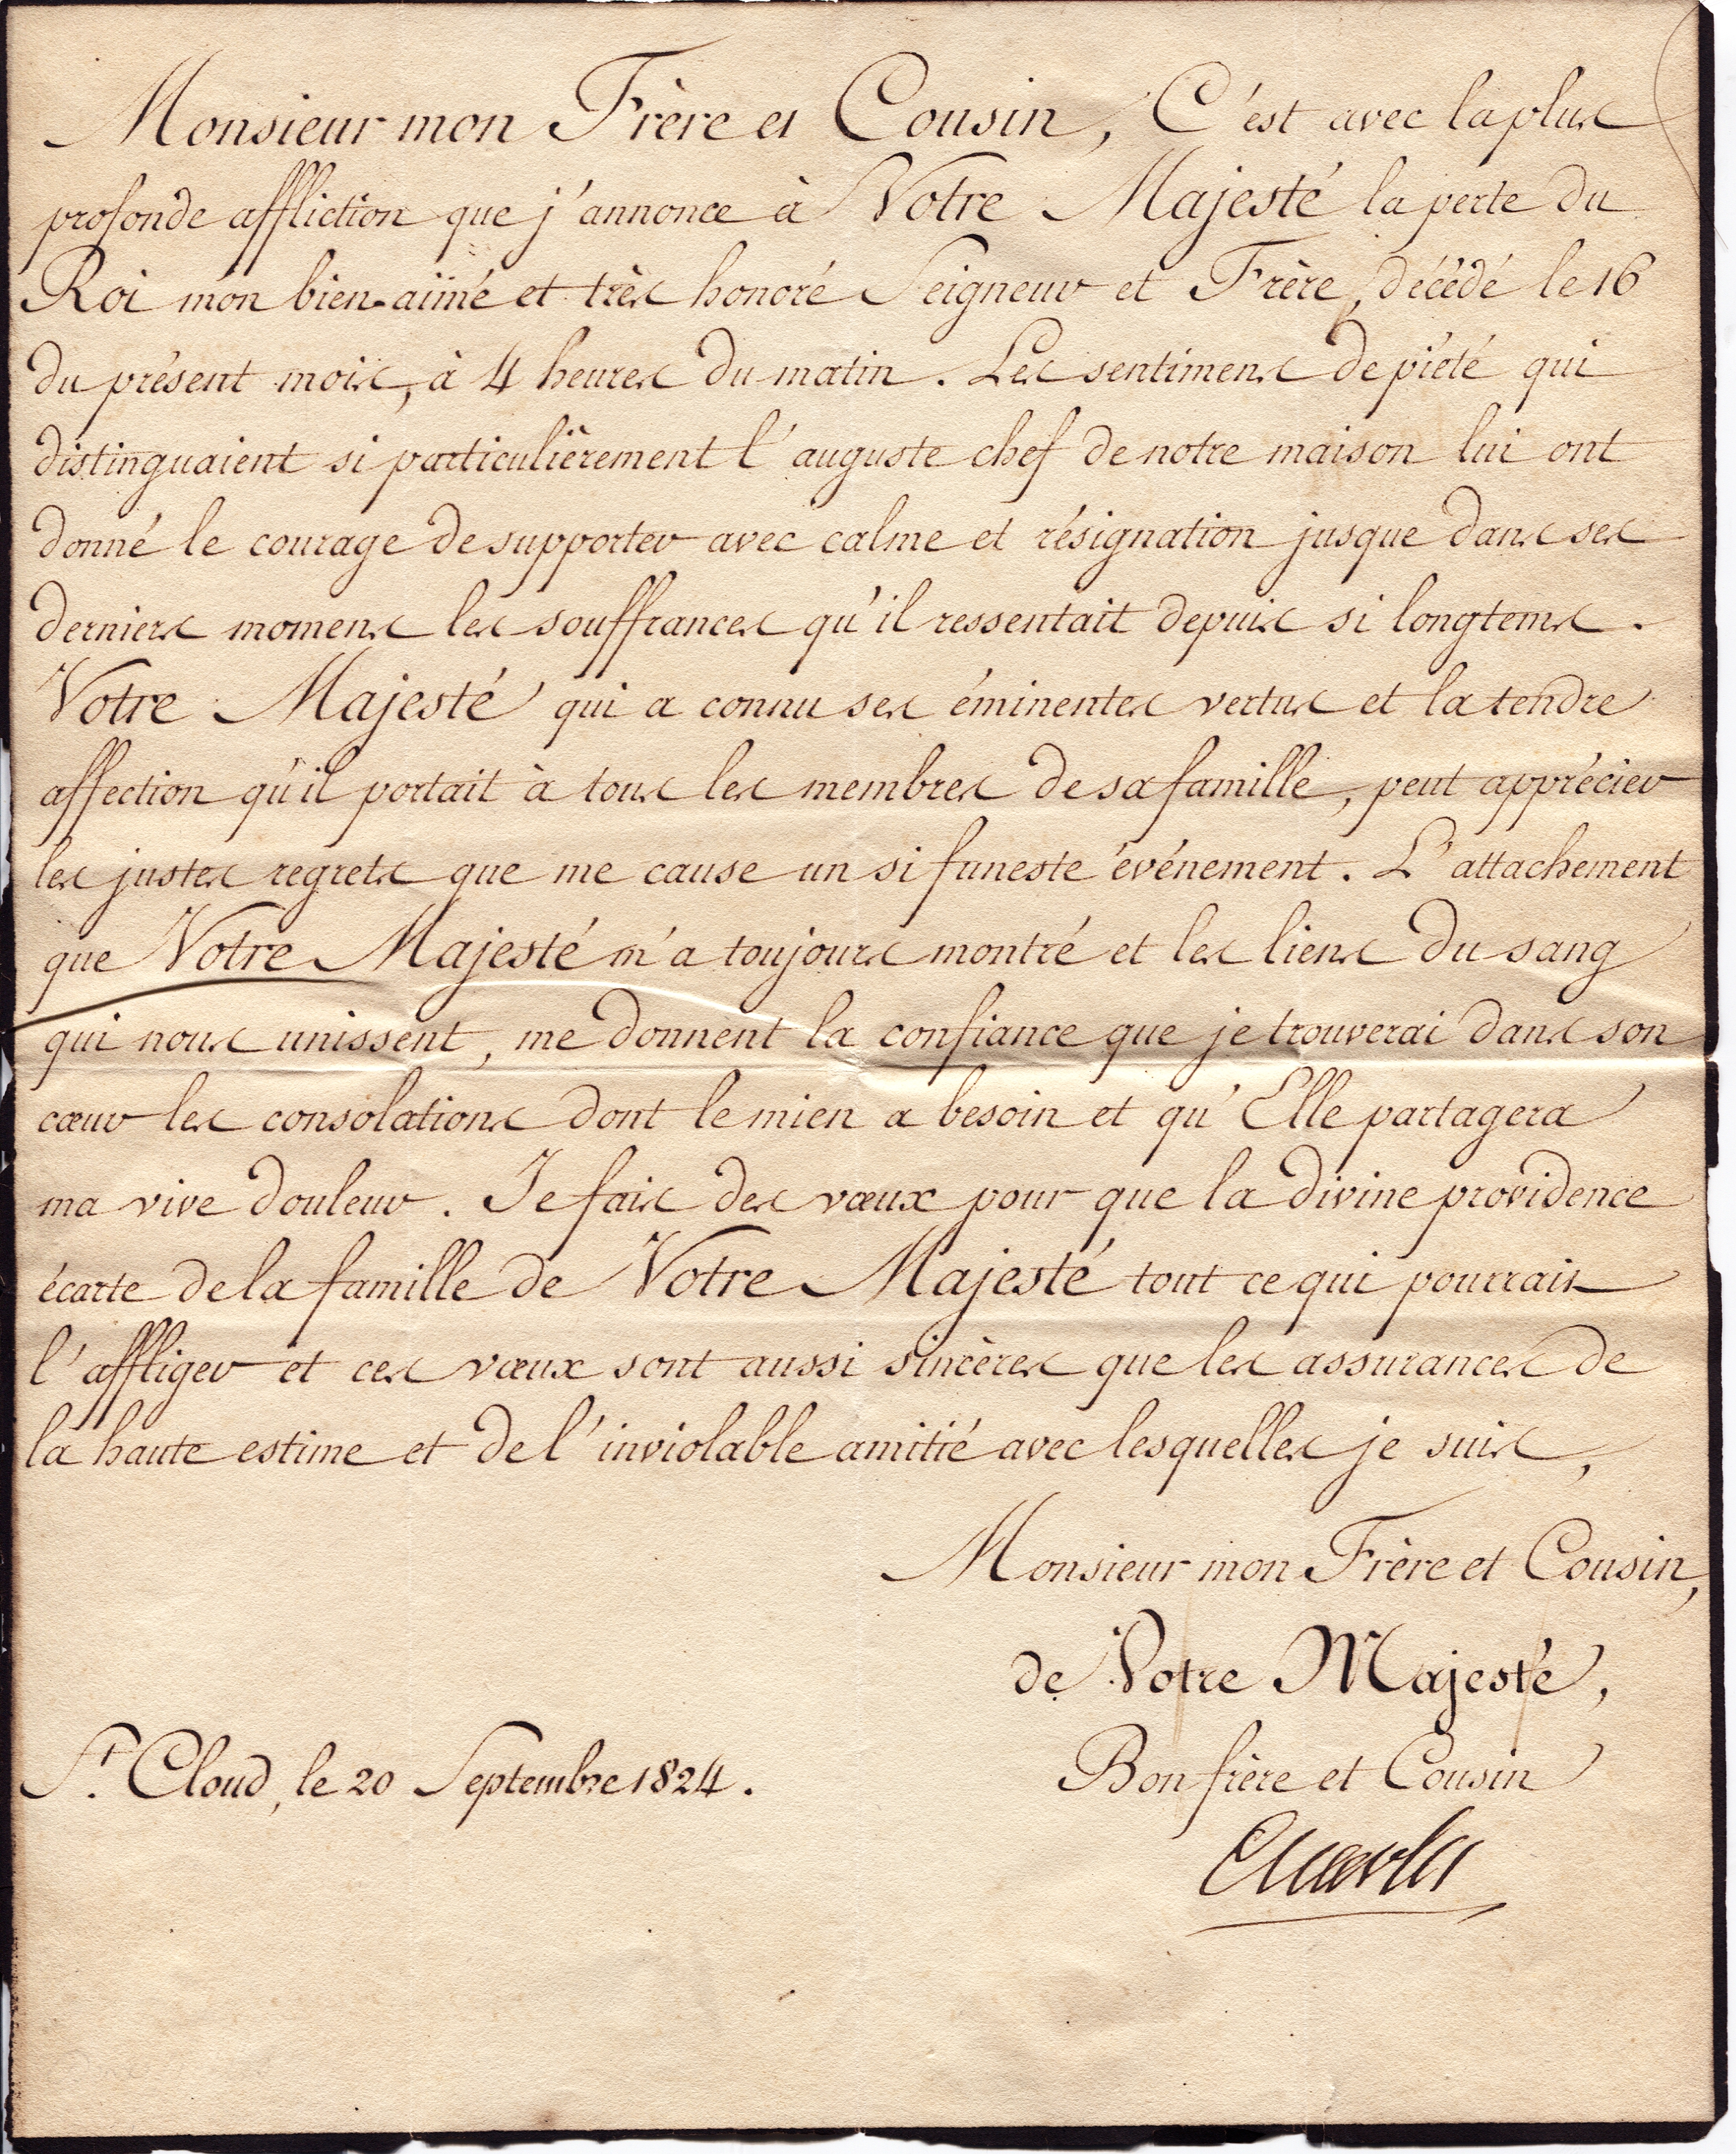 Monsieur mon Frère et Cousin, C'est avec la plus
profonde affliction que j'annonce à Votre Majesté la perte du
Roi mon bien-aimé et très honoré Seigneur et Frère, décédé le 16
du présent mois, à 4 heures du matin. Les sentimens de piété qui
distinguaient si particulièrement l'auguste chef de notre maison lui ont
donné le courage de supporter avec calme et résignation jusque dans ses
derniers momens les souffrances qu'il ressentait depuis si longtems.
Votre Majesté qui a connu ses éminentes vertus et la tendre
affection qu'il portait à tous les membres de sa famille, peut apprécier
les justes regrets que me cause un si funeste événement. L'attachement
que Votre Majesté m'a toujours montré et les liens du sang
qui nous unissent, me donnent la confiance que je trouverai dans son
cœur les consolations dont le mien a besoin et qu'Elle partagera
ma vive douleur. Je fais des vœux pour que la divine providence
écarte de la famille de Votre Majesté tout ce qui pourrait
l'affliger et ces vœux sont aussi sincères que les assurances de
la haute estime et de l'inviolable amitié avec lesquelles je suis,
Monsieur mon Frère et Cousin,
de Votre Majesté,
Bon frère et Cousin
St. Cloud, le 20 Septembre 1824.
Charles